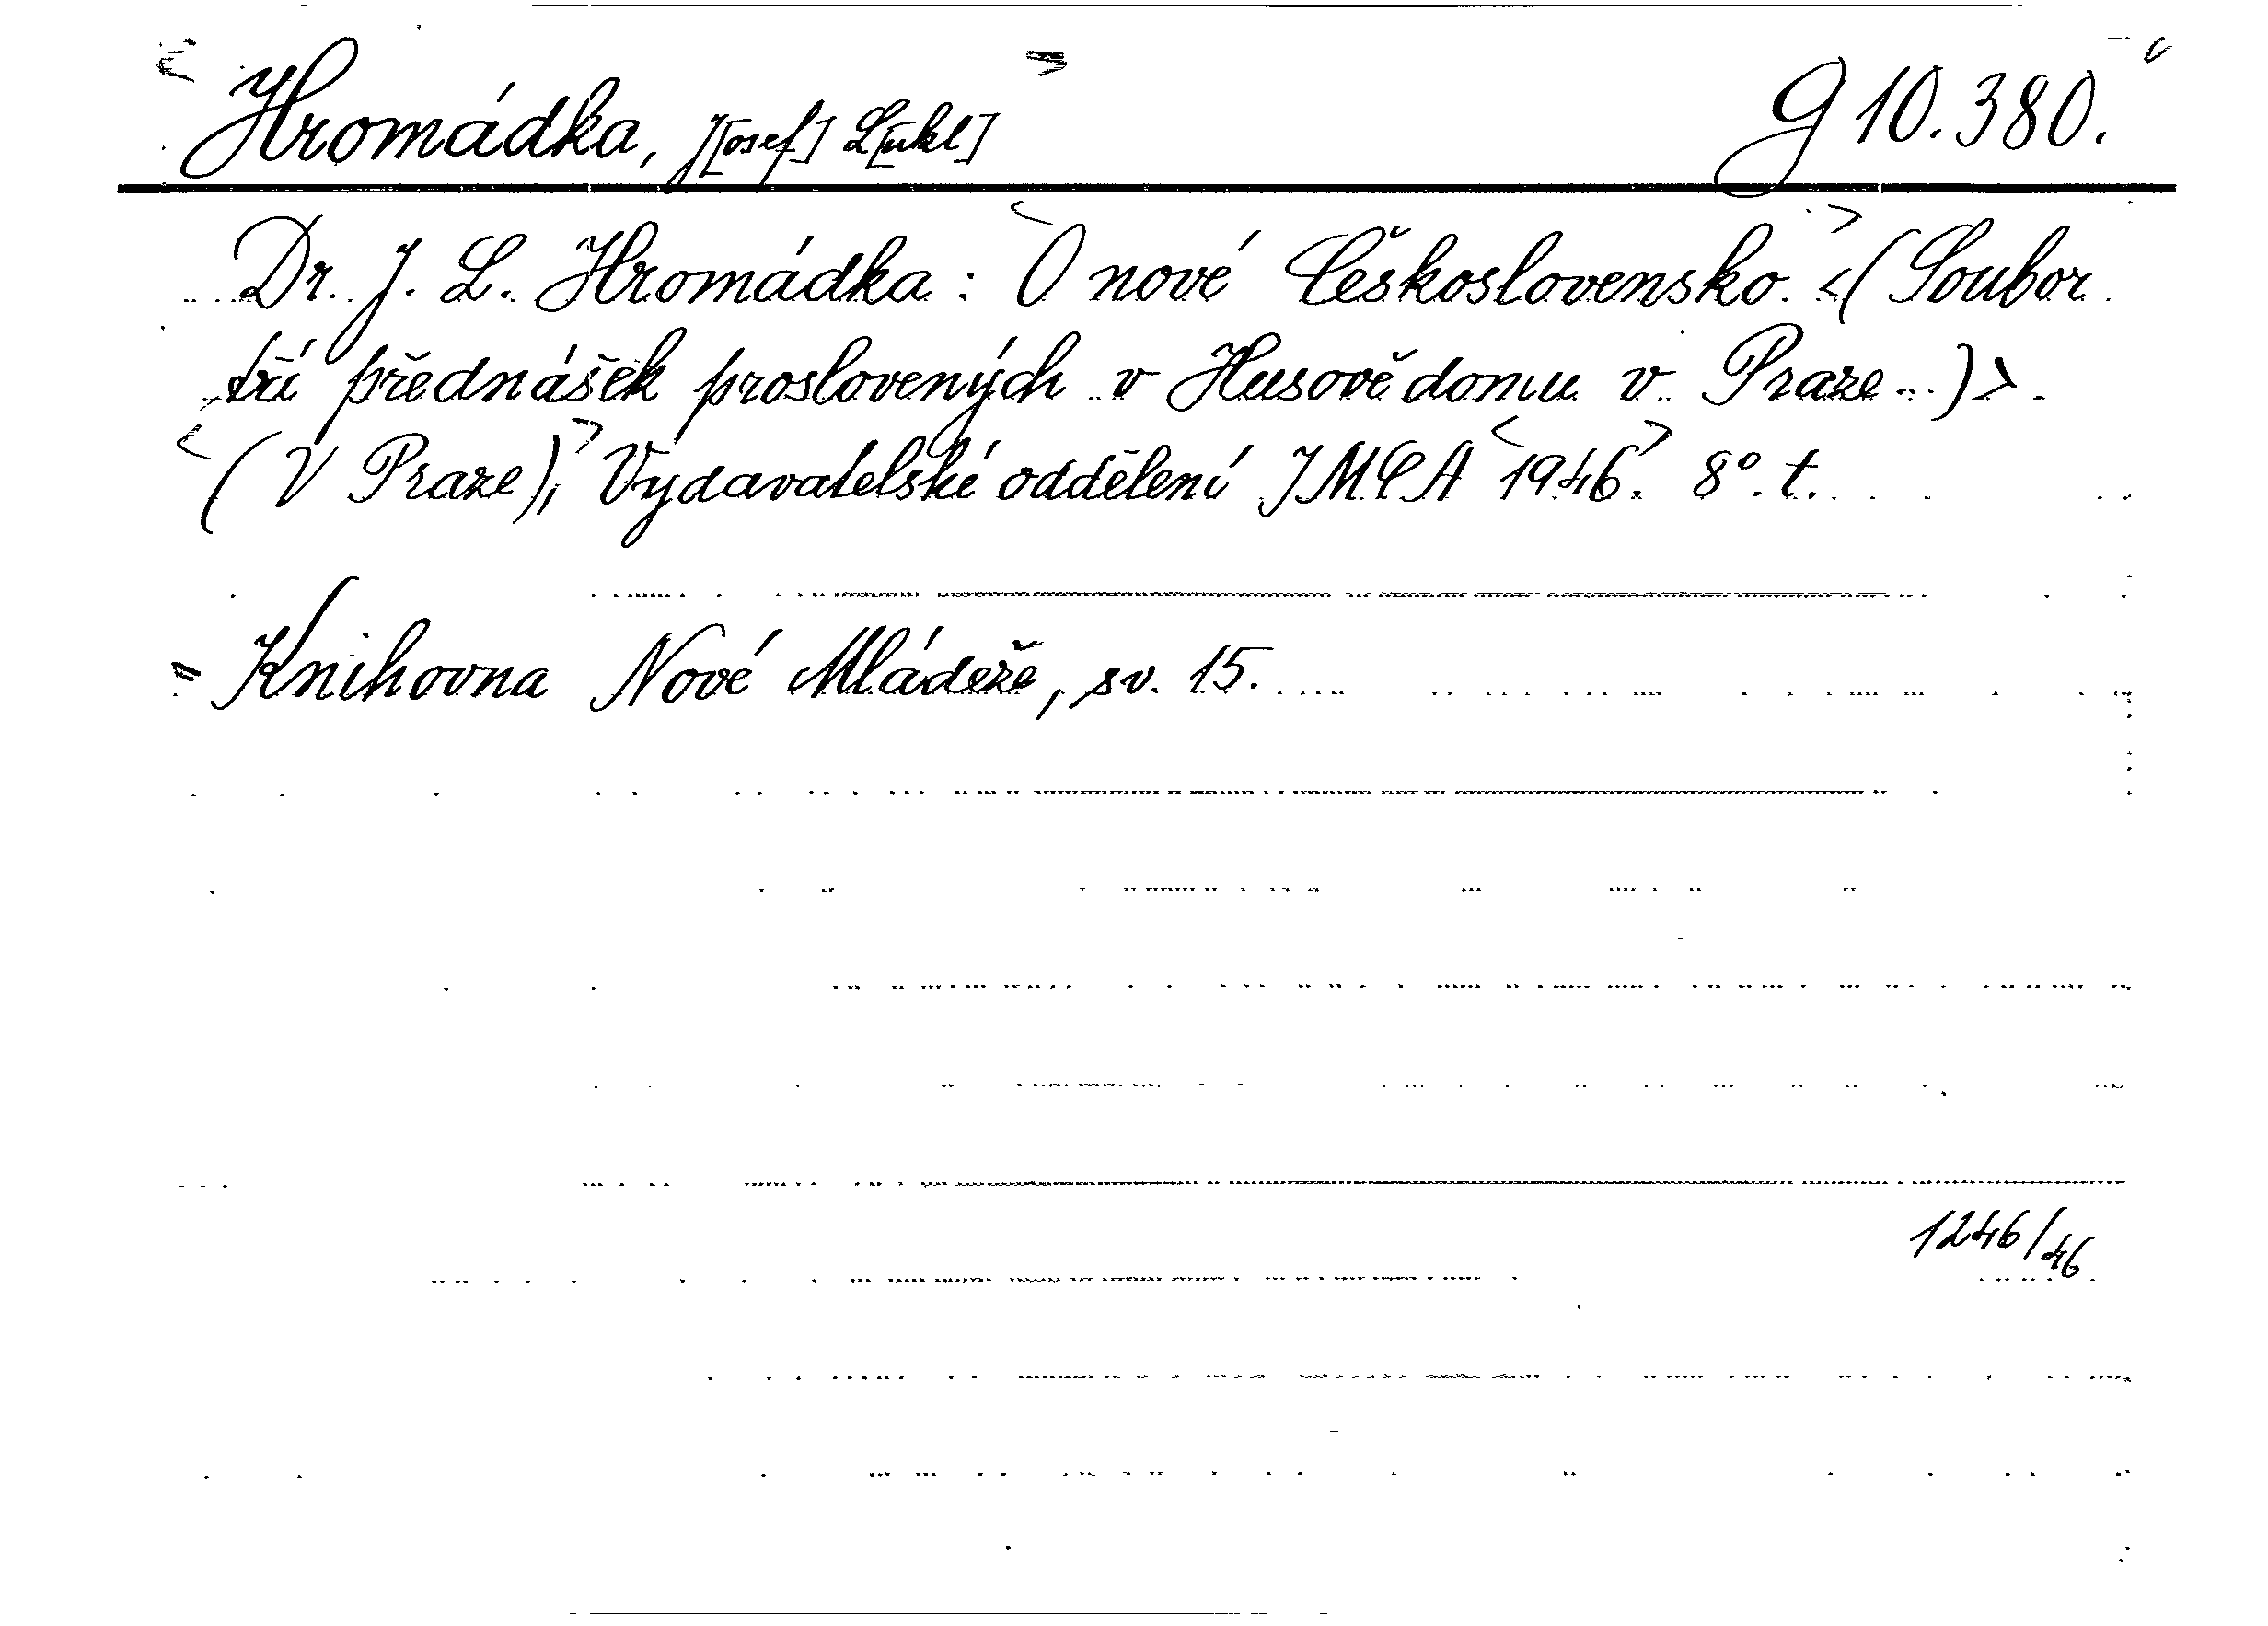 Hromádka, J[osef] L[ukl] g 10.380.
Dr. J. L. Hromádka: <O nové Československo.> <(Soubor
tří přednášek proslovených v Husově domu v Praze..)>.
<(V Praze),> Vydavatelské oddělení YMCA <1946>. 8°. t.
= Knihovna Nové Mládeže, sv. 15.
1246/46